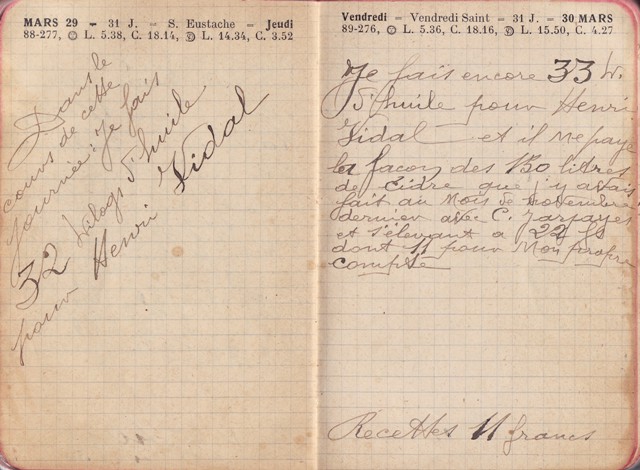 MARS 29 – 31 J. – S. Eustache – Jeudi
88-277, L. 5.38, C. 18.14, L. 14.34, C. 3.52
Dans le
cours de cette
journée: Je fais
32 kilogs d'huile
pour Henri Vidal
Vendredi – Vendredi Saint – 31 J. – 30 MARS
89-276, L. 5.36, C. 18.16, L. 15.50, C. 4.27
Je fais encore 33 k.
d'huile pour Henri
Vidal et il me paye
la façon des 130 litres
de cidre que j'y avais
fait au mois de Novembre
dernier avec C.
et s'élevant a 22 fs
dont 11 pour mon propre
compte
Recettes 11 francs